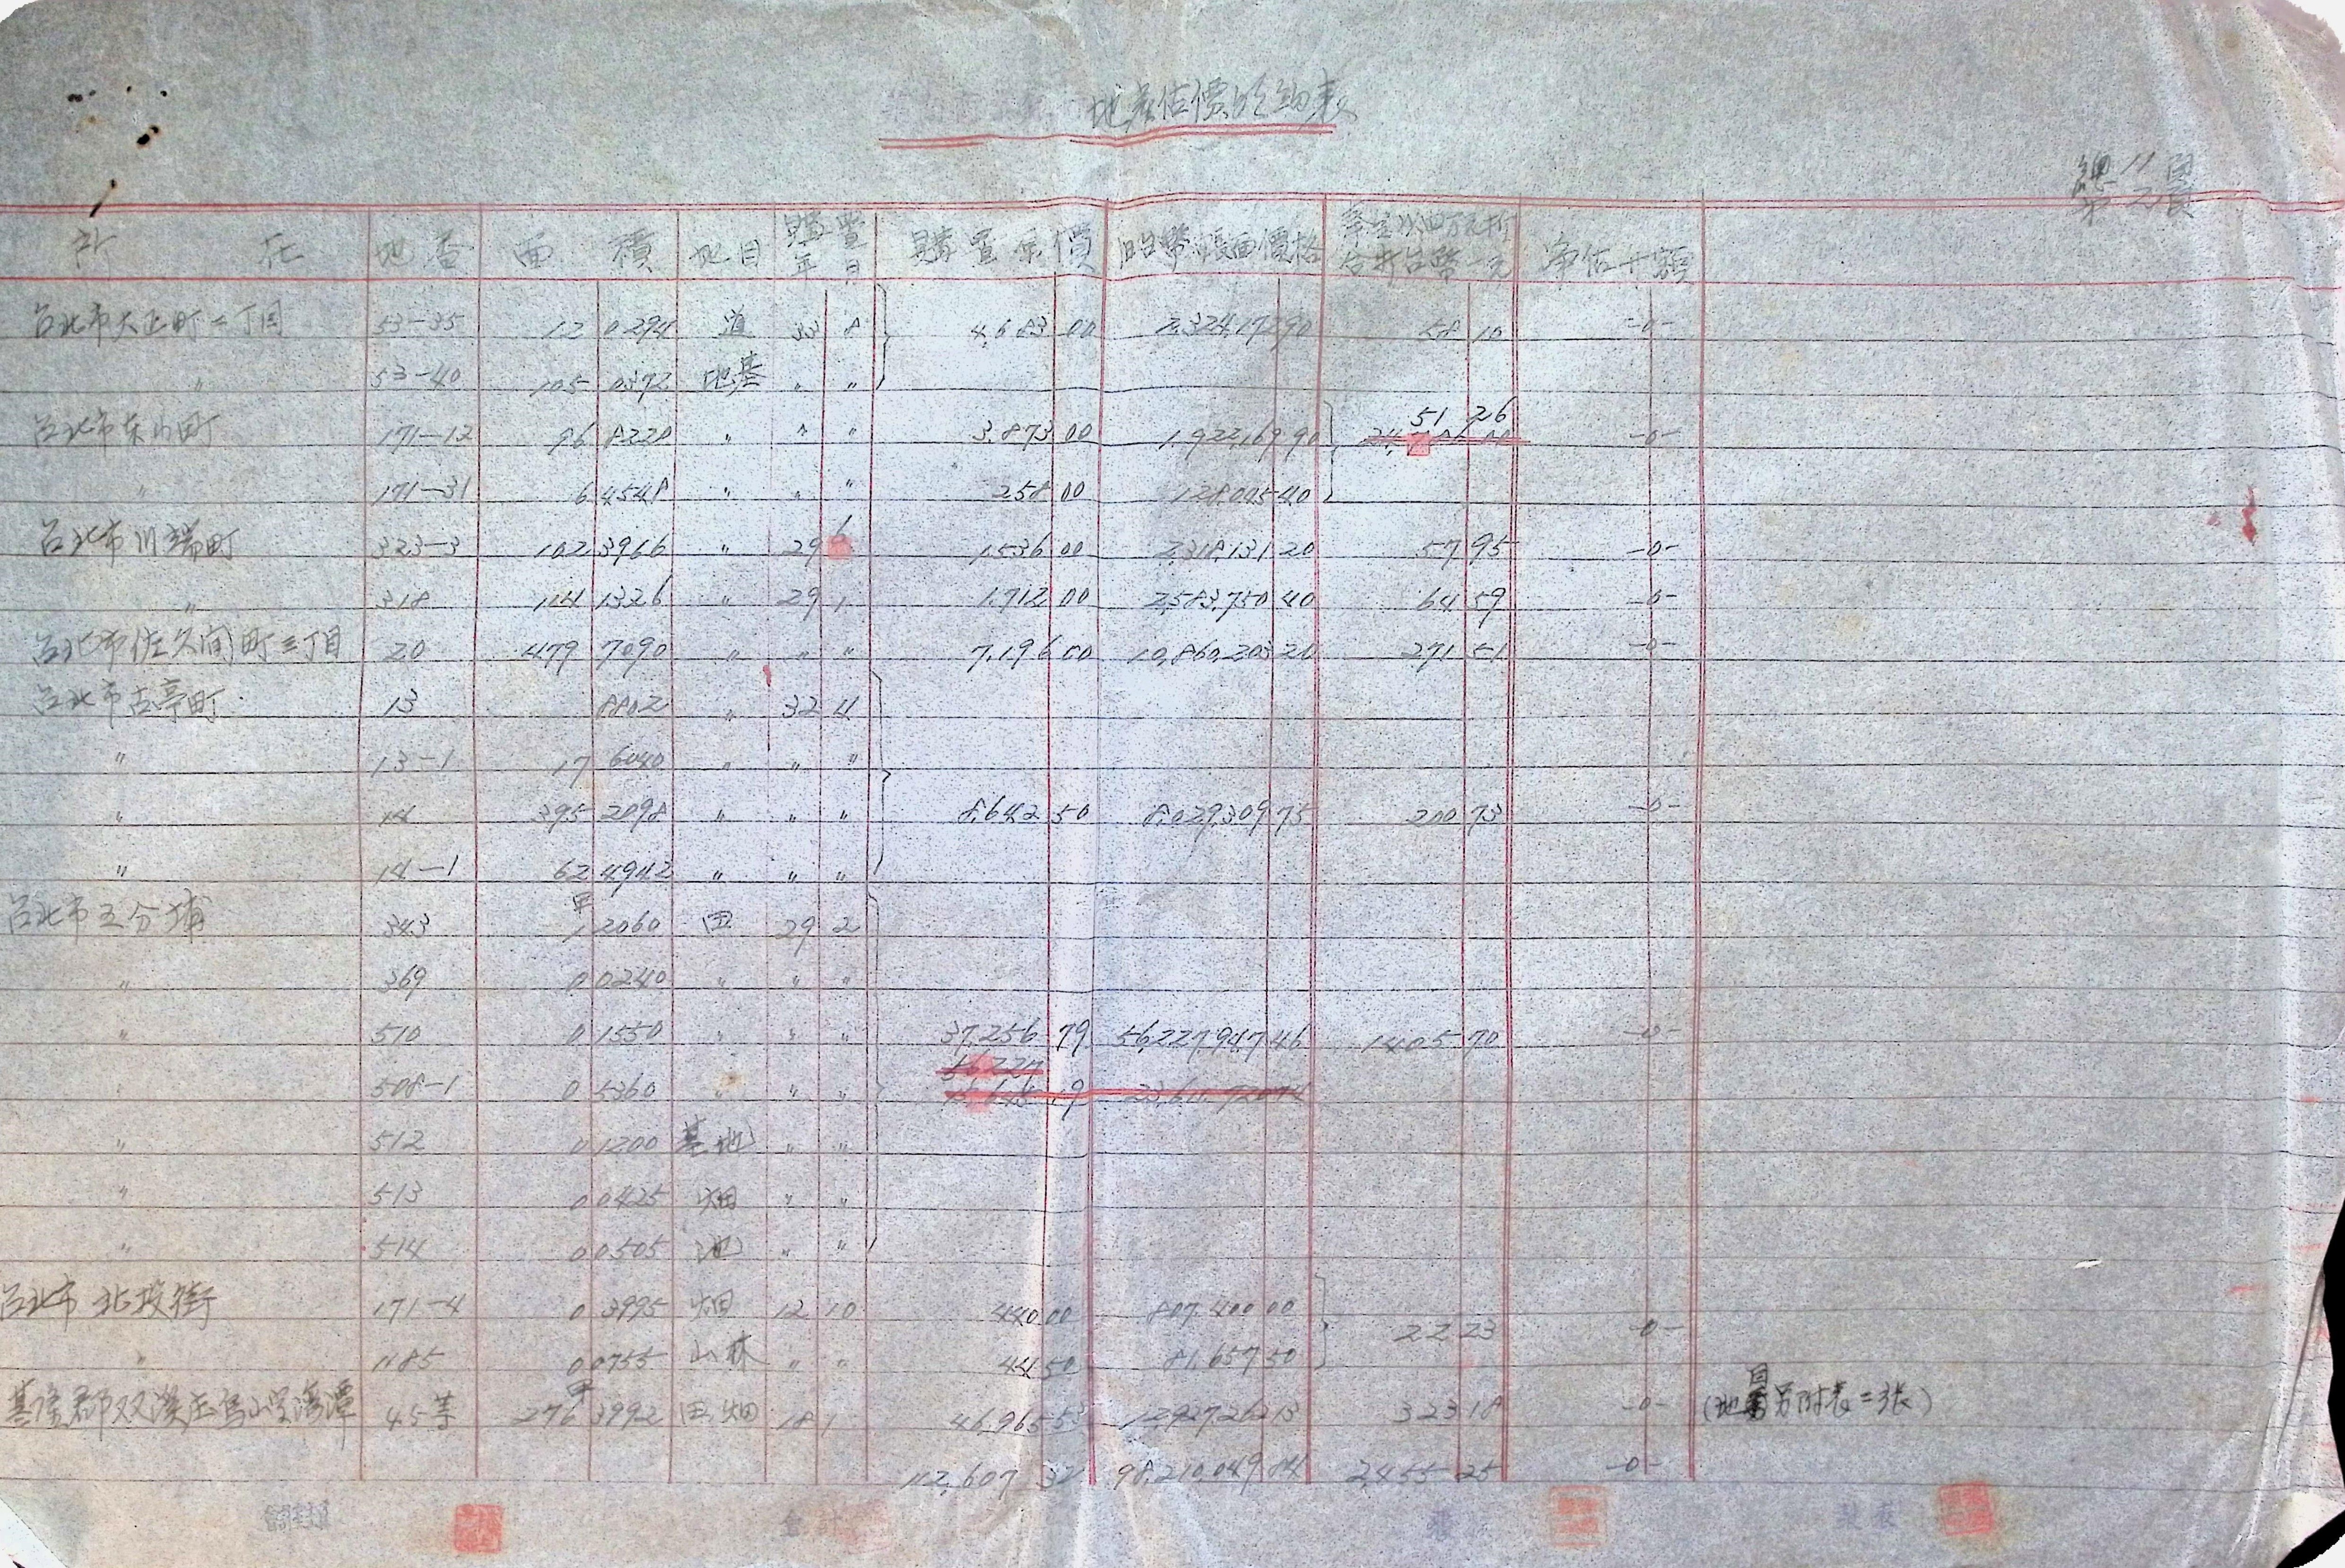 地基估價明細表
總 11 頁
第 2 頁
所 在 地番 面 積 地目 購置年月 購置原價 旧台幣帳面價格 淨估十額
台北市大正町二丁目 53-35 12 0294 道 33 8 4,683 00 2,324,172 90 58 10 -0-
〃 53-40 105 0372 地基 〃 〃
51 26
台北市東山町 171-12 96 8220 〃 〃 〃 3,873 00 1,922,169 90 -0-
〃 171-31 6 4548 〃 〃 〃 258 00 128,045 40
台北市川端町 323-3 102 3966 〃 29 6 1,536 00 2,318,131 20 57 95 -0-
〃 318 114 1326 〃 29 1 1,712 00 2,583,750 40 64 59 -0-
台北市佐久間町三丁目 20 479 7090 〃 〃 〃 7,196 00 10,860,203 20 271 51 -0-
台北市古亭町 13 8802 〃 32 4
〃 13-1 17 6040 〃 〃 〃
〃 14 395 2098 〃 〃 〃 8,642 50 8,029,309 75 200 73 -0-
〃 14-1 62 4942 〃 〃 〃
台北市五分埔 343 甲 1 2060 田 29 2
〃 369 0 0240 〃 〃 〃
〃 510 0 1550 〃 〃 〃 37,256 79 56,227,947 46 1405 70 -0-
〃 508-1 0 5360 〃 〃 〃
〃 512 0 1200 基地 〃 〃
〃 513 0 0425 畑 〃 〃
〃 514 0 0505 池 〃 〃
台北市北投街 171-4 0 3995 畑 12 10 440 00 807,400 00
22 23 -0-
〃 1185 0 0755 山林 〃 〃 44 50 81,657 50
基隆郡双溪庄 45等 甲 276 3992 田畑 18 1 46,965 53 12,927,262 13 323 18 -0- (地目另附表二張)
112,607 32 98,210,049 84 2,455 25 -0-